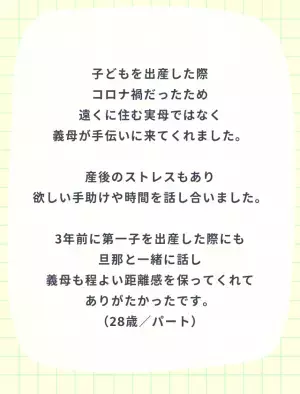 子どもを出産した際
コロナ禍だったため
遠くに住む実母ではなく
義母が手伝いに来てくれました。
産後のストレスもあり
欲しい手助けや時間を話し合いました。
3年前に第一子を出産した際にも
旦那と一緒に話し
義母も程よい距離感を保ってくれて
ありがたかったです。
（28歳／パート）